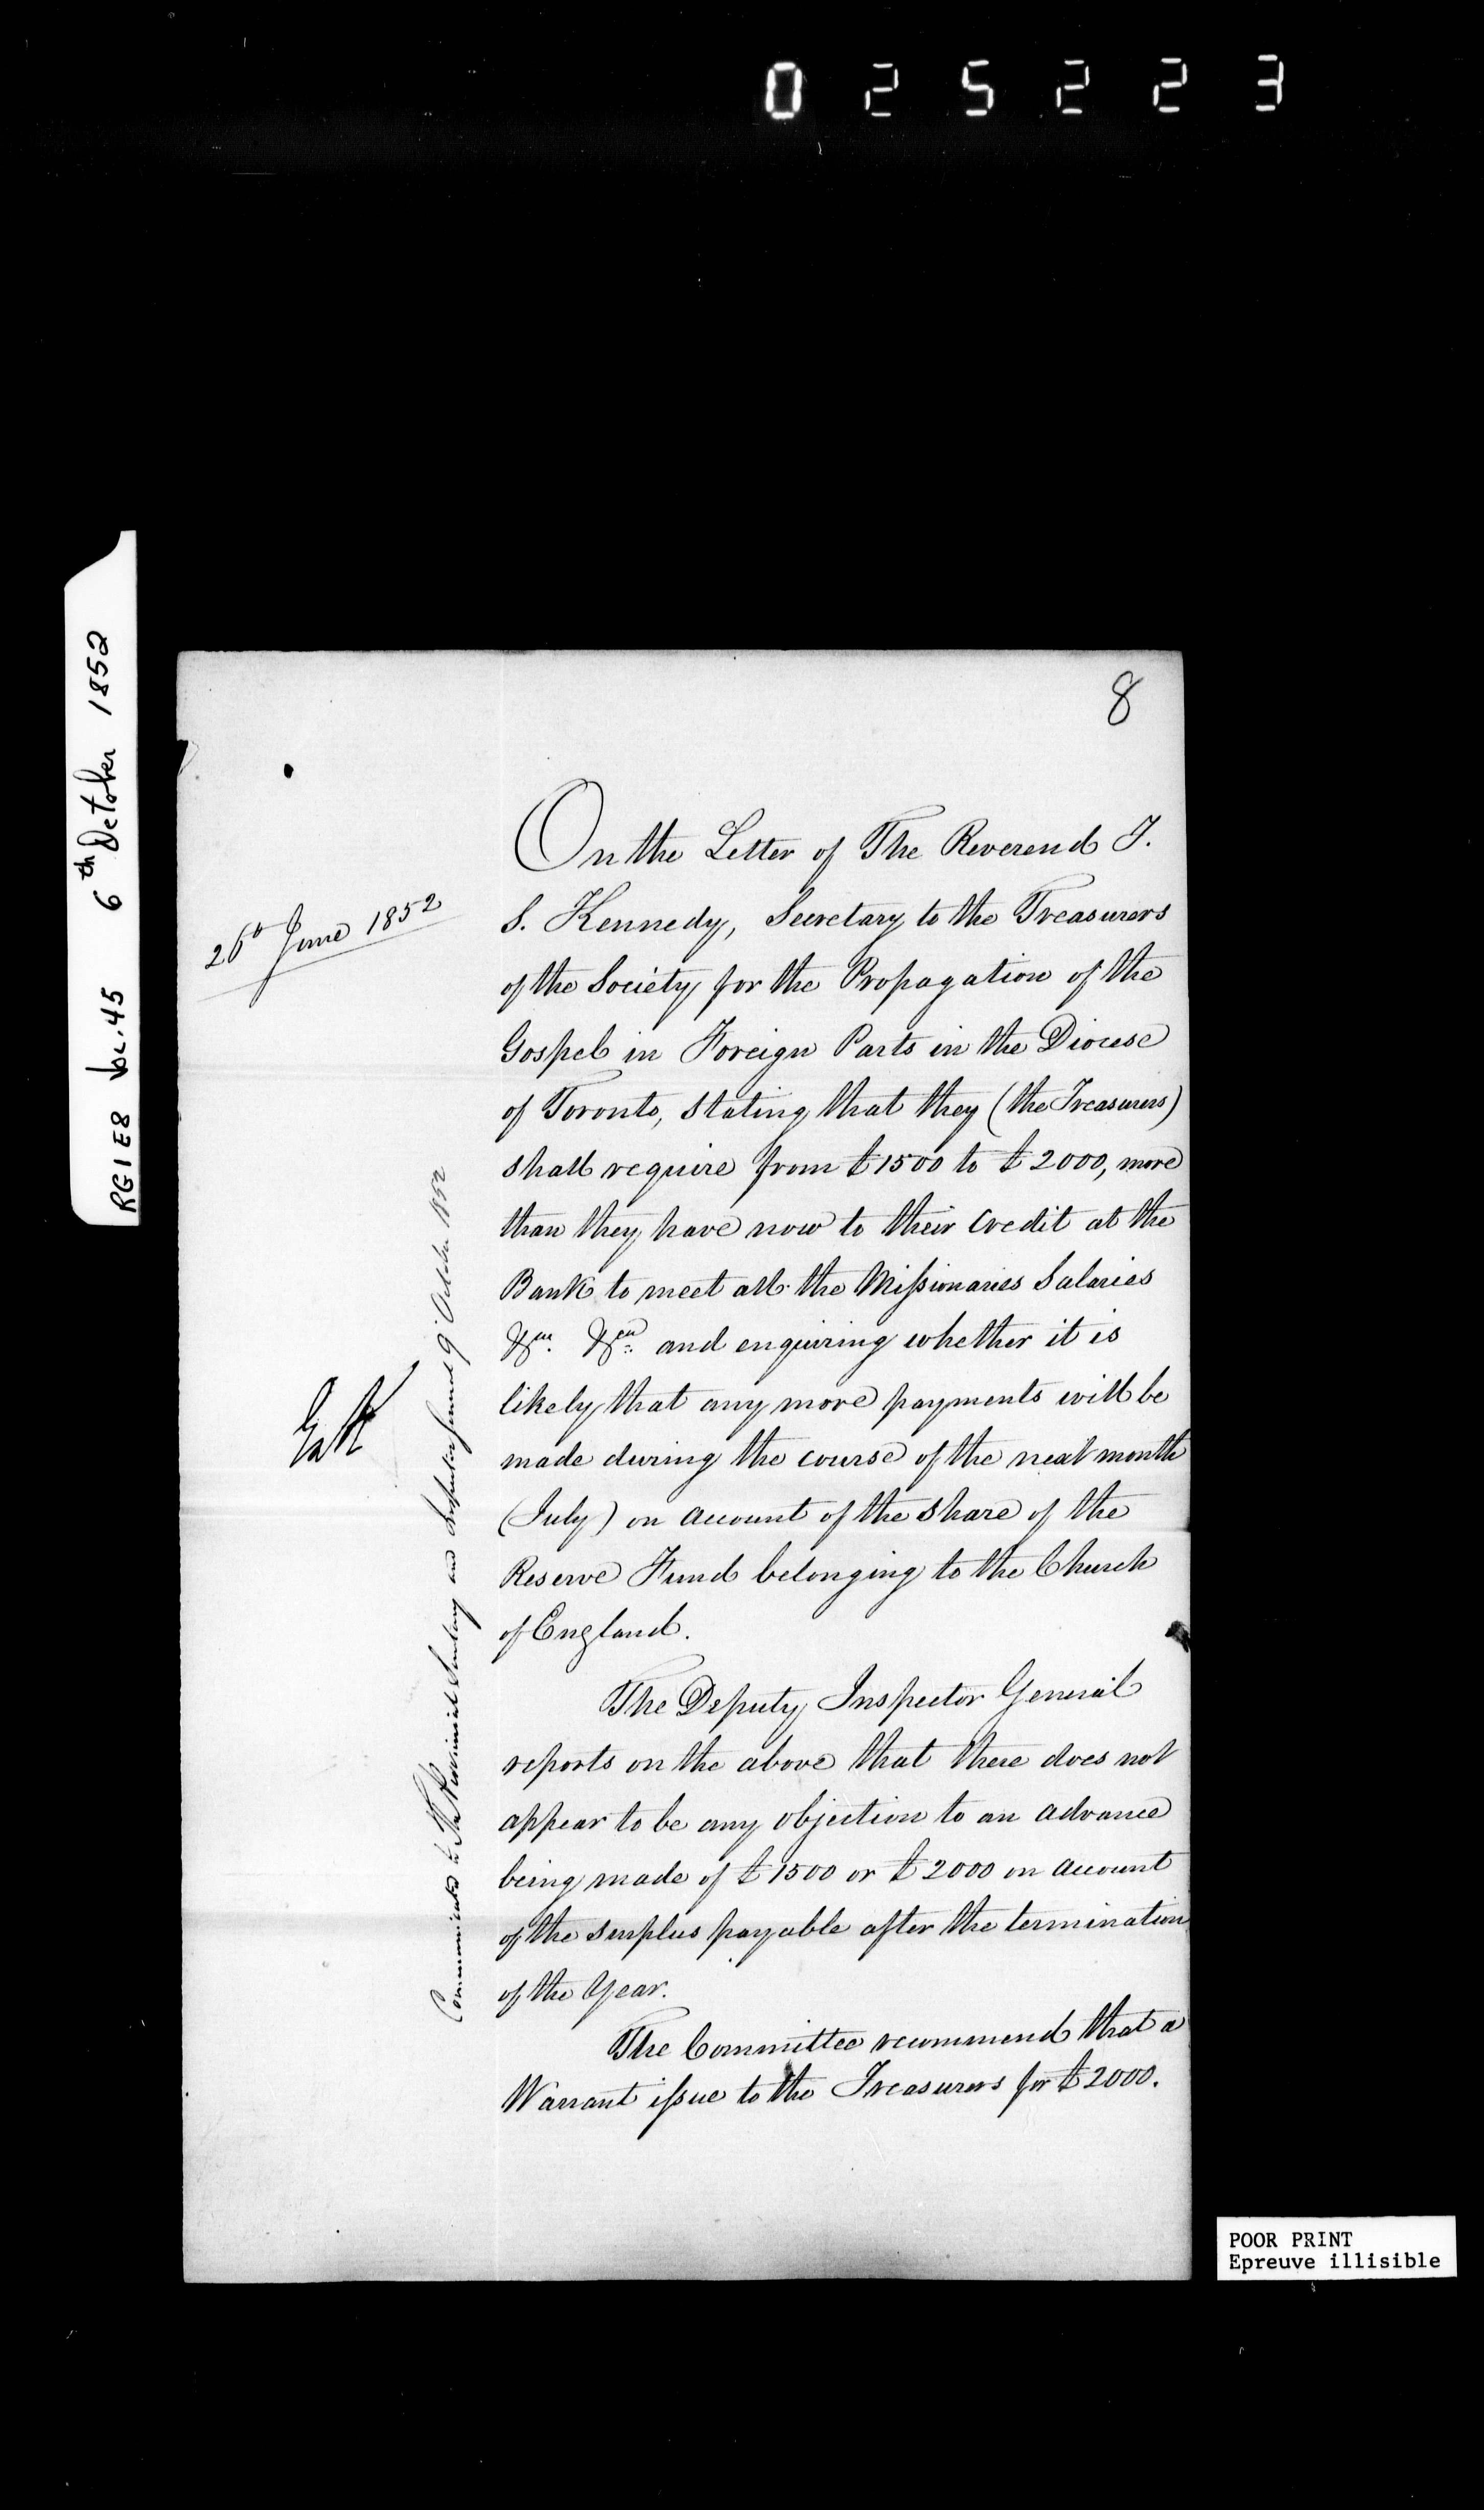 025223
RG1E8 Vol.45 6th October 1852
8
26th June 1852
On the Letter of The Reverend T.
S. Kennedy, Secretary to the Treasurers
of the Society for the Propagation of the
Gospel in Foreign Parts in the Diocese
of Toronto, stating that they (the Treasurers)
shall require from £1500 to £2000, more
than they have now to their credit at the
Bank to meet all the Missionaries Salaries
&ca. &ca. and enquiring whether it is
likely that any more payments will be
made during the course of the next month
(July) on account of the share of the
Reserve Fund belonging to the Church
of England.
The Deputy Inspector General
reports on the above that there does not
appear to be any objection to an advance
being made of £1500 or £2000 on account
of the surplus payable after the termination
of the Year.
The Committee recommend that a
Warrant issue to the Treasurers for £2000.
Communicated to The Provincial Secretary and Inspector General 9 October 1852
POOR PRINT
Epreuve illisible